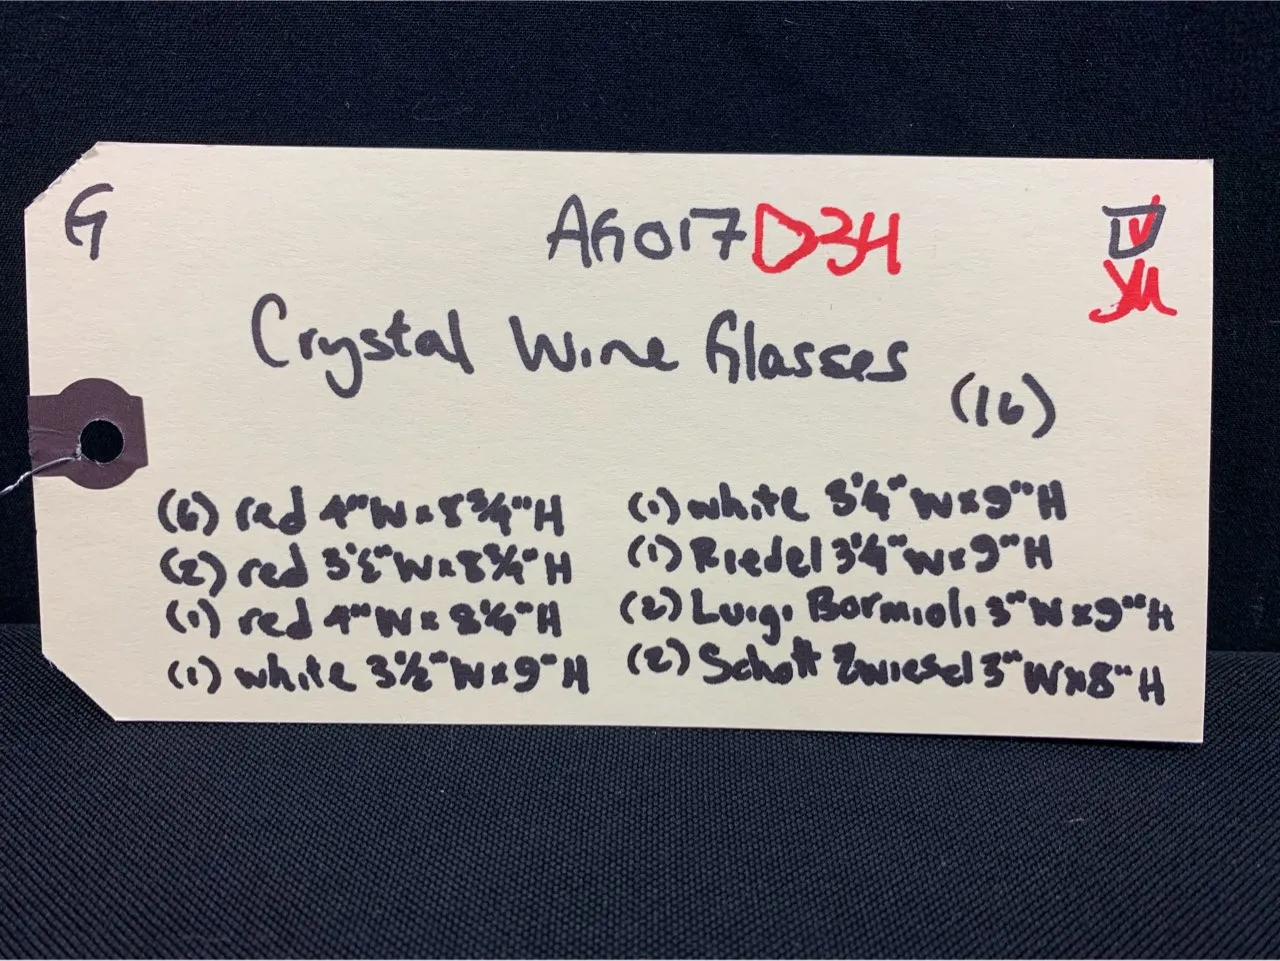 G
AG017D3H
Crystal Wine Glasses
(16)
(6) red 4"W x 8 3/4"H
(2) red 3 1/2"W x 8 3/4"H
(1) red 4"W x 8 1/4"H
(1) white 3 1/2"W x 9"H
(1) white 3 1/4"W x 9"H
(1) Riedel 3 1/4"W x 9"H
(2) Luigi Bormioli 3"W x 9"H
(2) Schott Zwiesel 3"W x 8"H